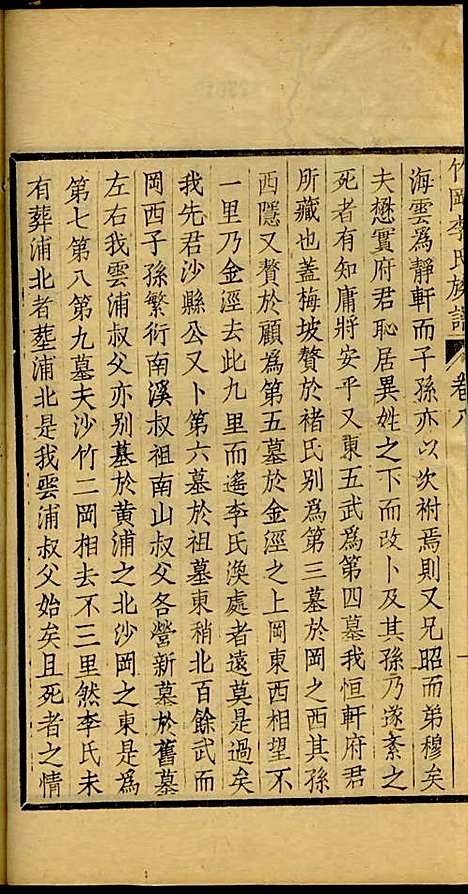 竹岡李氏族譜 卷八
海雲爲靜軒而子孫亦以次祔焉則又兄昭而弟穆矣
夫懋實府君恥居異姓之下而改卜及其孫乃遂紊之
死者有知庸將安乎又東五武爲第四墓我恒軒府君
所藏也蓋梅坡贅於褚氏别爲第三墓於岡之西其孫
西隱又贅於顧爲第五墓於金涇之上岡東西相望不
一里乃金涇去此九里而遙李氏渙處者遠莫是過矣
我先君沙縣公又卜第六墓於祖墓東稍北百餘武而
岡西子孫繁衍南溪叔祖南山叔父各營新墓於舊墓
左右我雲浦叔父亦别墓於黄浦之北沙岡之東是爲
第七第八第九墓夫沙竹二岡相去不三里然李氏未
有葬浦北者葬浦北是我雲浦叔父始矣且死者之情